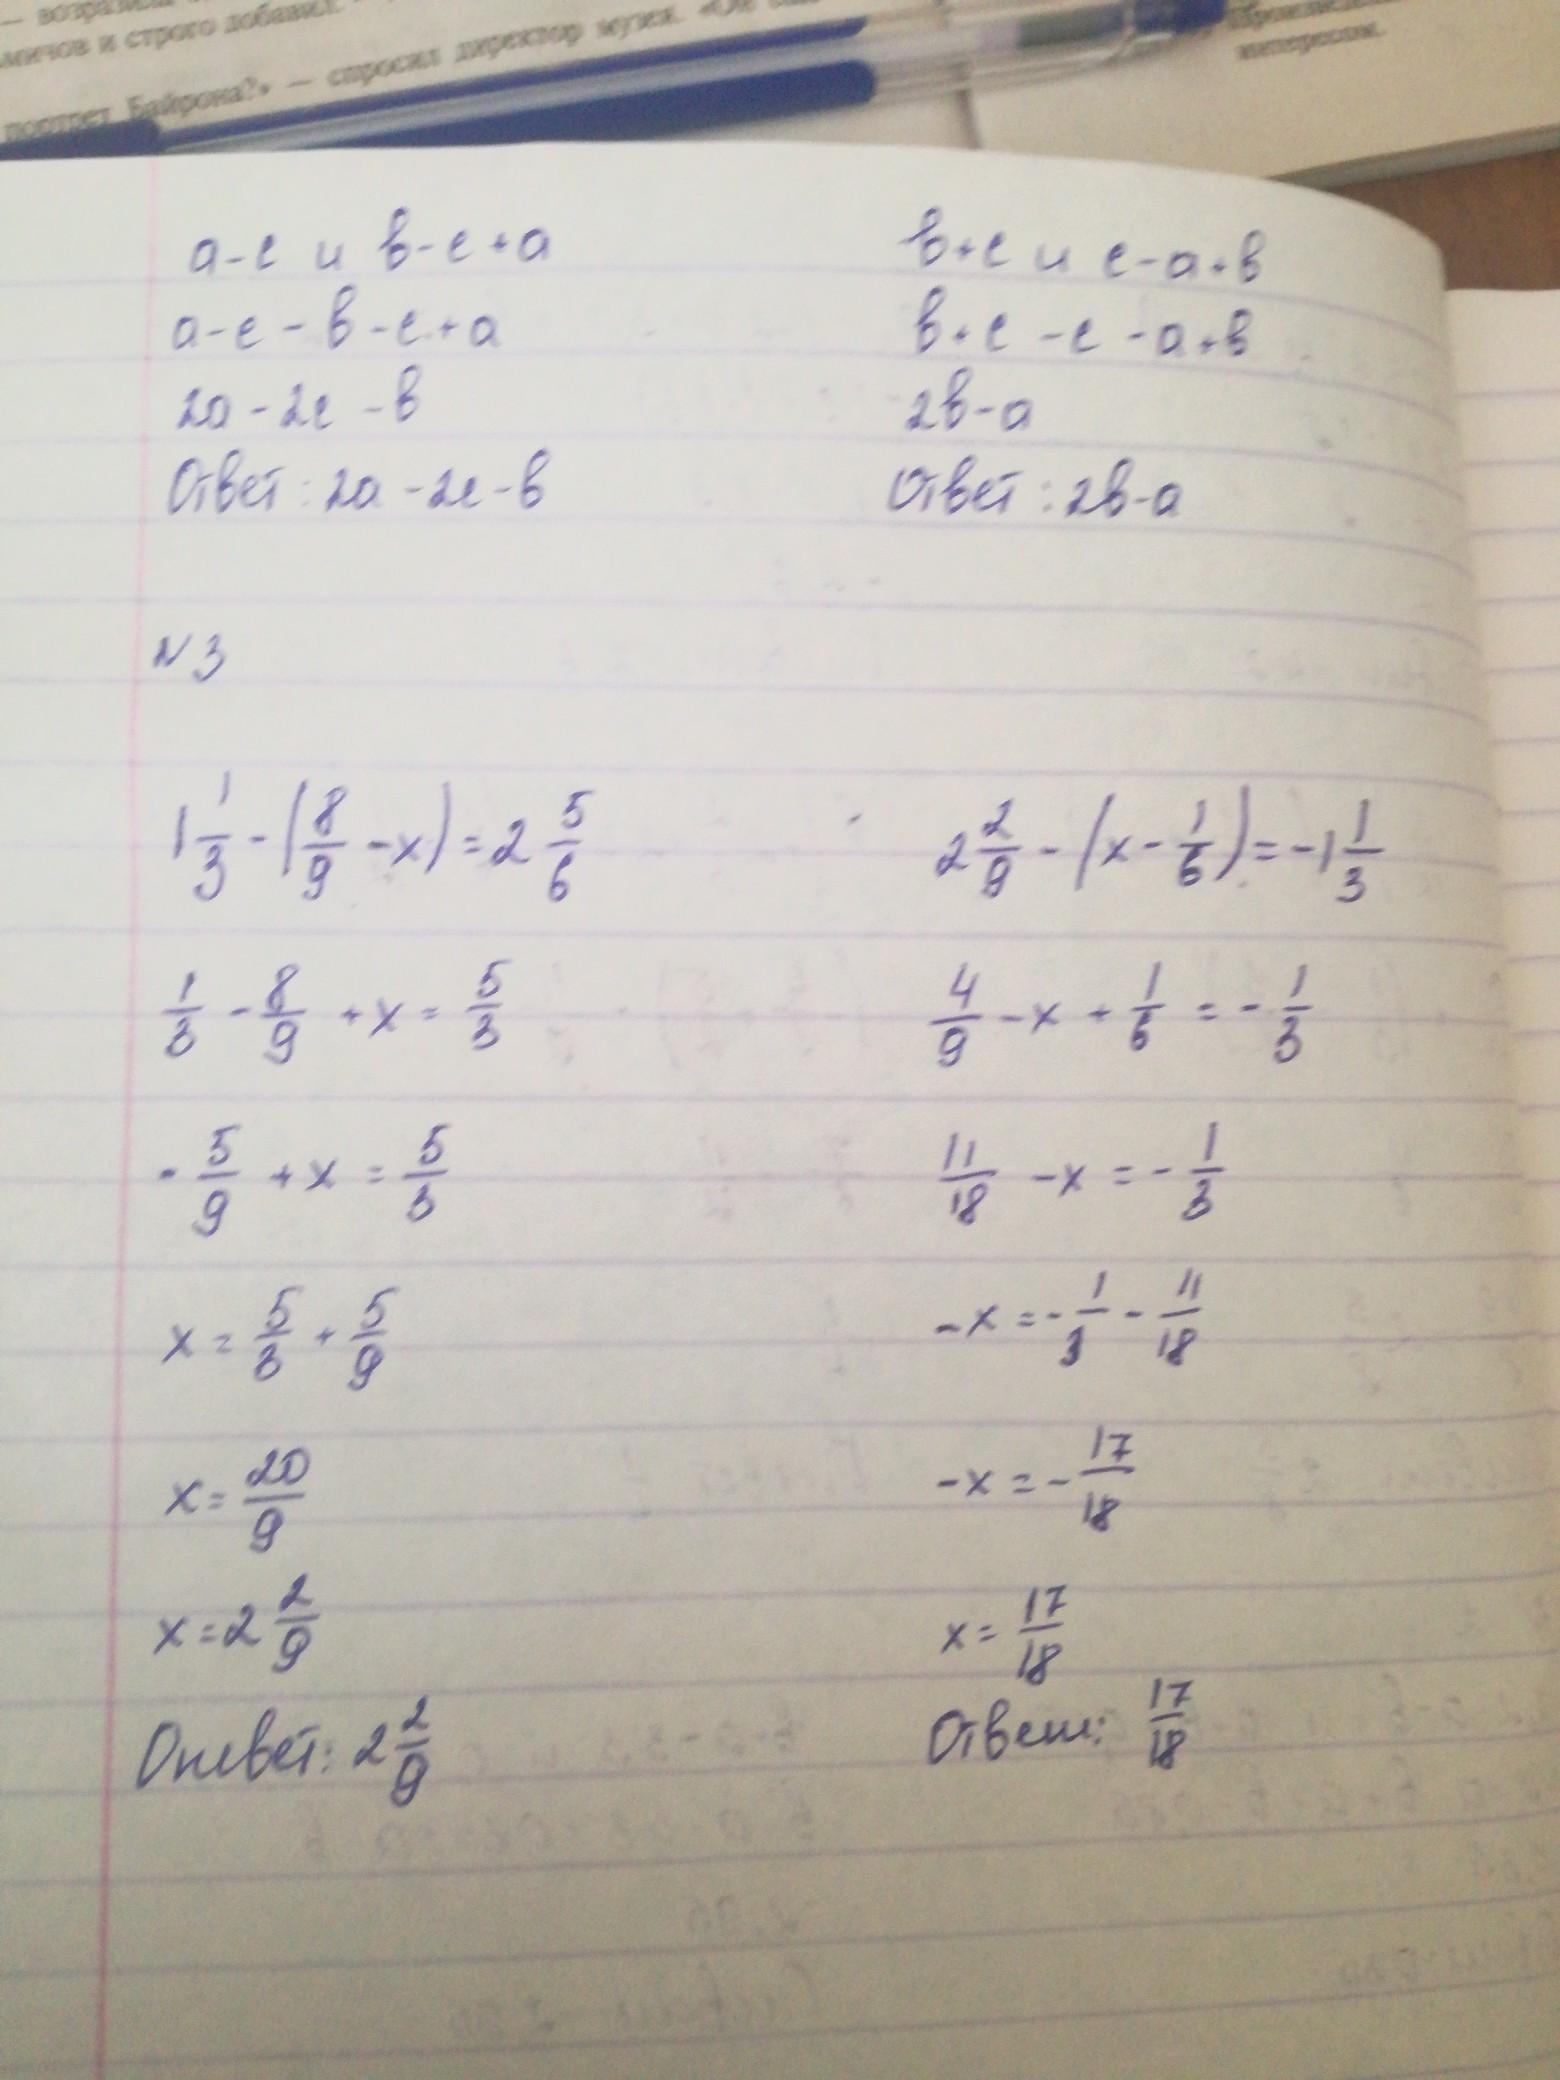 — возразил
мичов и строго добавил:
портрет Байрона?» — спросил директор музея. «Он
интересом.
а-с и в-с+а
а-с-в-с+а
2а-2с-в
Ответ: 2а-2с-в
в+с и с-а+в
в+с-с-а+в
2в-а
Ответ: 2в-а
N3
1 1/3 - (8/9 - x) = 2 5/6
1/3 - 8/9 + x = 5/3
- 5/9 + x = 5/3
x = 5/3 + 5/9
x = 20/9
x = 2 2/9
Ответ: 2 2/9
2 2/9 - (x - 1/6) = -1 1/3
4/9 - x + 1/6 = - 1/3
11/18 - x = - 1/3
-x = - 1/3 - 11/18
-x = - 17/18
x = 17/18
Ответ: 17/18